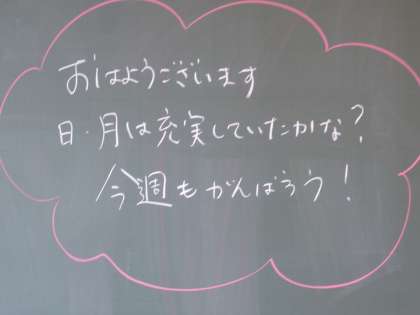 おはようございます
日・月は充実していたかな?
今週もがんばろう!